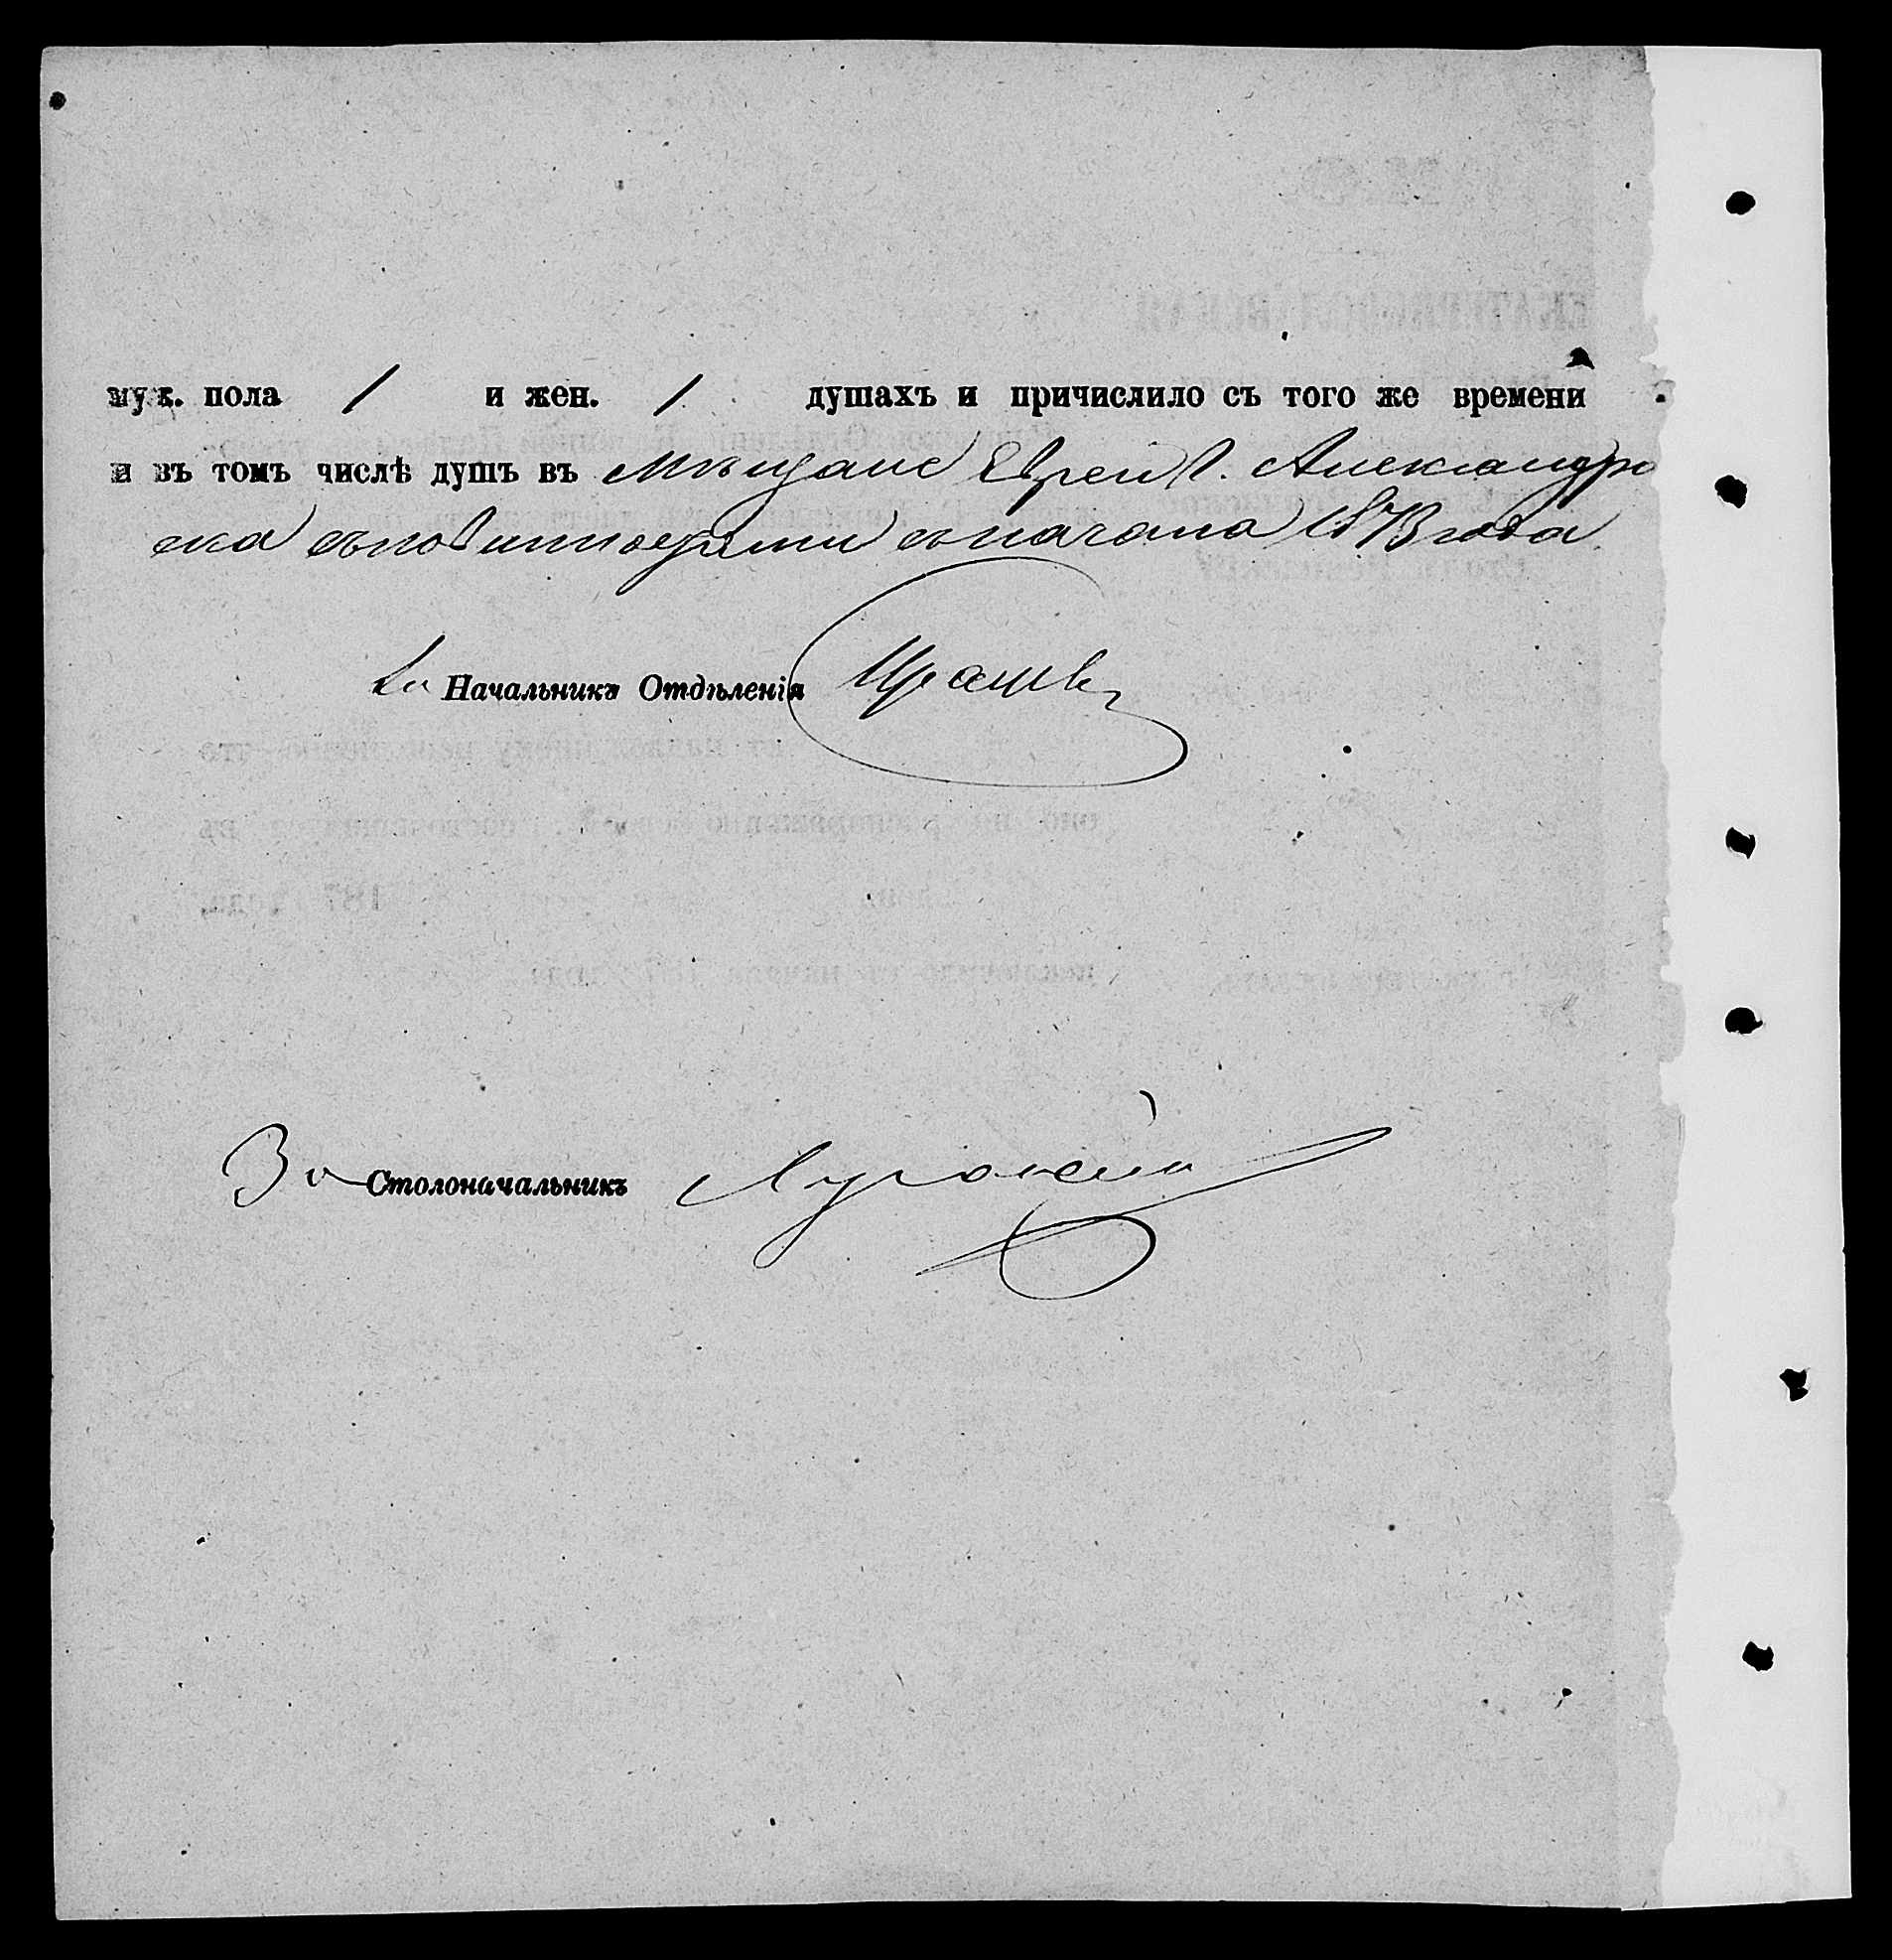 муж. пола 1 и жен. 1 душахъ и причислило съ того же времени
и въ томъ числѣ душъ въ Мѣщане Евреи г. Александро
ска съ повинностями съ начала 1873 года.
За Начальникъ Отдѣленія
За Столоначальникъ